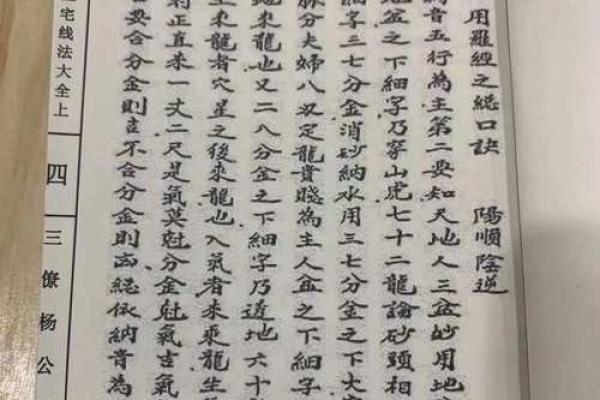 用羅經之總口訣 陽順陰逆
音五行為主第二要知天地人三盆妙用地
盆之下細字乃穿山虎七十二龍論砂頭相
細字三七分金消砂納水用三七分金之下大
脉分夫婦八双定龍貴賤為主人盆之下細字
來龍也又二八分金之下細字乃透地六十
生來龍者穴星之後來龍也入氣者來乘龍生
射正直來一丈二尺是氣莫尅分金尅氣吉氣
要合分金則吉不合分金則凶總依納音為
宅线法大全上
四
三僚杨公